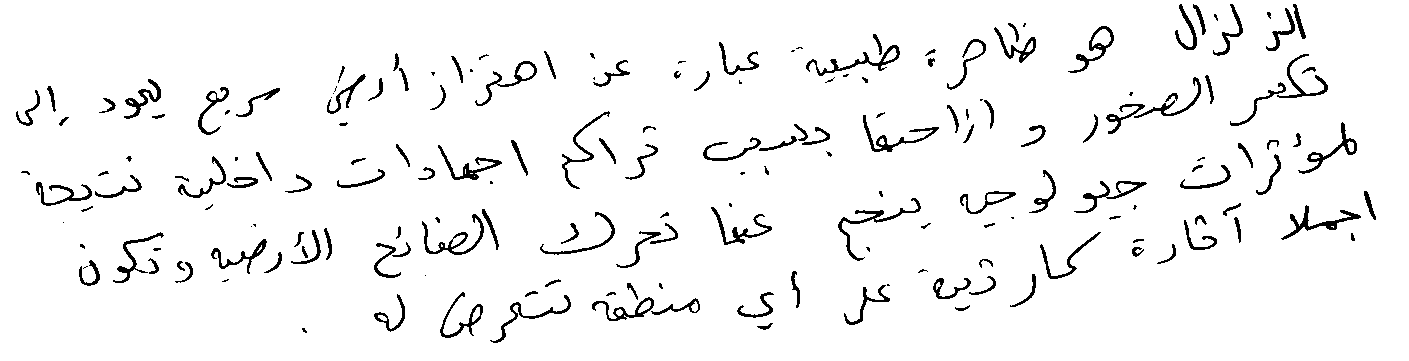 الزلزال هو ظاهرة طبيعية عبارة عن اهتزاز أرضي سريع يعود إلى
تكسر الصخور و ازاحتها بسبب تراكم اجهادات داخلية نتيجة
لمؤثرات جيولوجيه ينجم عنها تحرك الصفائح الأرضيه وتكون
اجملا آثارة كارثية على أي منطقه تتعرض له .